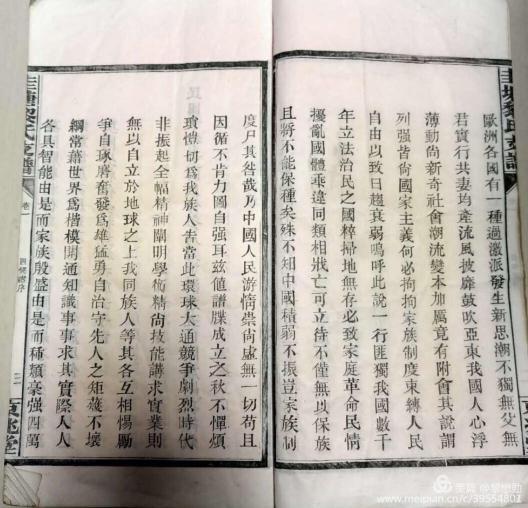 歐洲各國有一種過激派發生新思潮不獨無父無
君實行共妻均產流風披靡鼓吹亞東我國人心浮
薄動尚新奇社會潮流變本加厲竟有附會其說謂
列强皆尙國家主義何必拘拘家族制度束縛人民
自由以致日趨衰弱嗚呼此說一行匪獨我國數千
年立法治民之國粹掃地無存必致家庭革命民情
擾亂國體乖違同類相戕亡可立待不僅無以保族
且將不能保種矣殊不知中國積弱不振豈家族制
度尸其咎哉乃中國人民游惰崇尙虛無一切苟且
因循不肯力圖自强耳玆値譜牒成立之秋不憚煩
瑣愷切爲我族人吿當此環球大通競爭劇烈時代
非振起全幅精神闡明學術精尙技能講求實業則
無以自立於地球之上我同族人等其各互相惕勵
爭自琢磨奮發爲雄猛勇自治守先人之矩矱不壞
綱常藉世界爲楷模開通知識事事求其實際人人
各具智能由是而家族殷盛由是而種類豪强四萬
圭塘黎氏支譜
卷一
圭塘黎氏支譜
美篇 @黎懋勛
www.meipian.cn/c/39554802